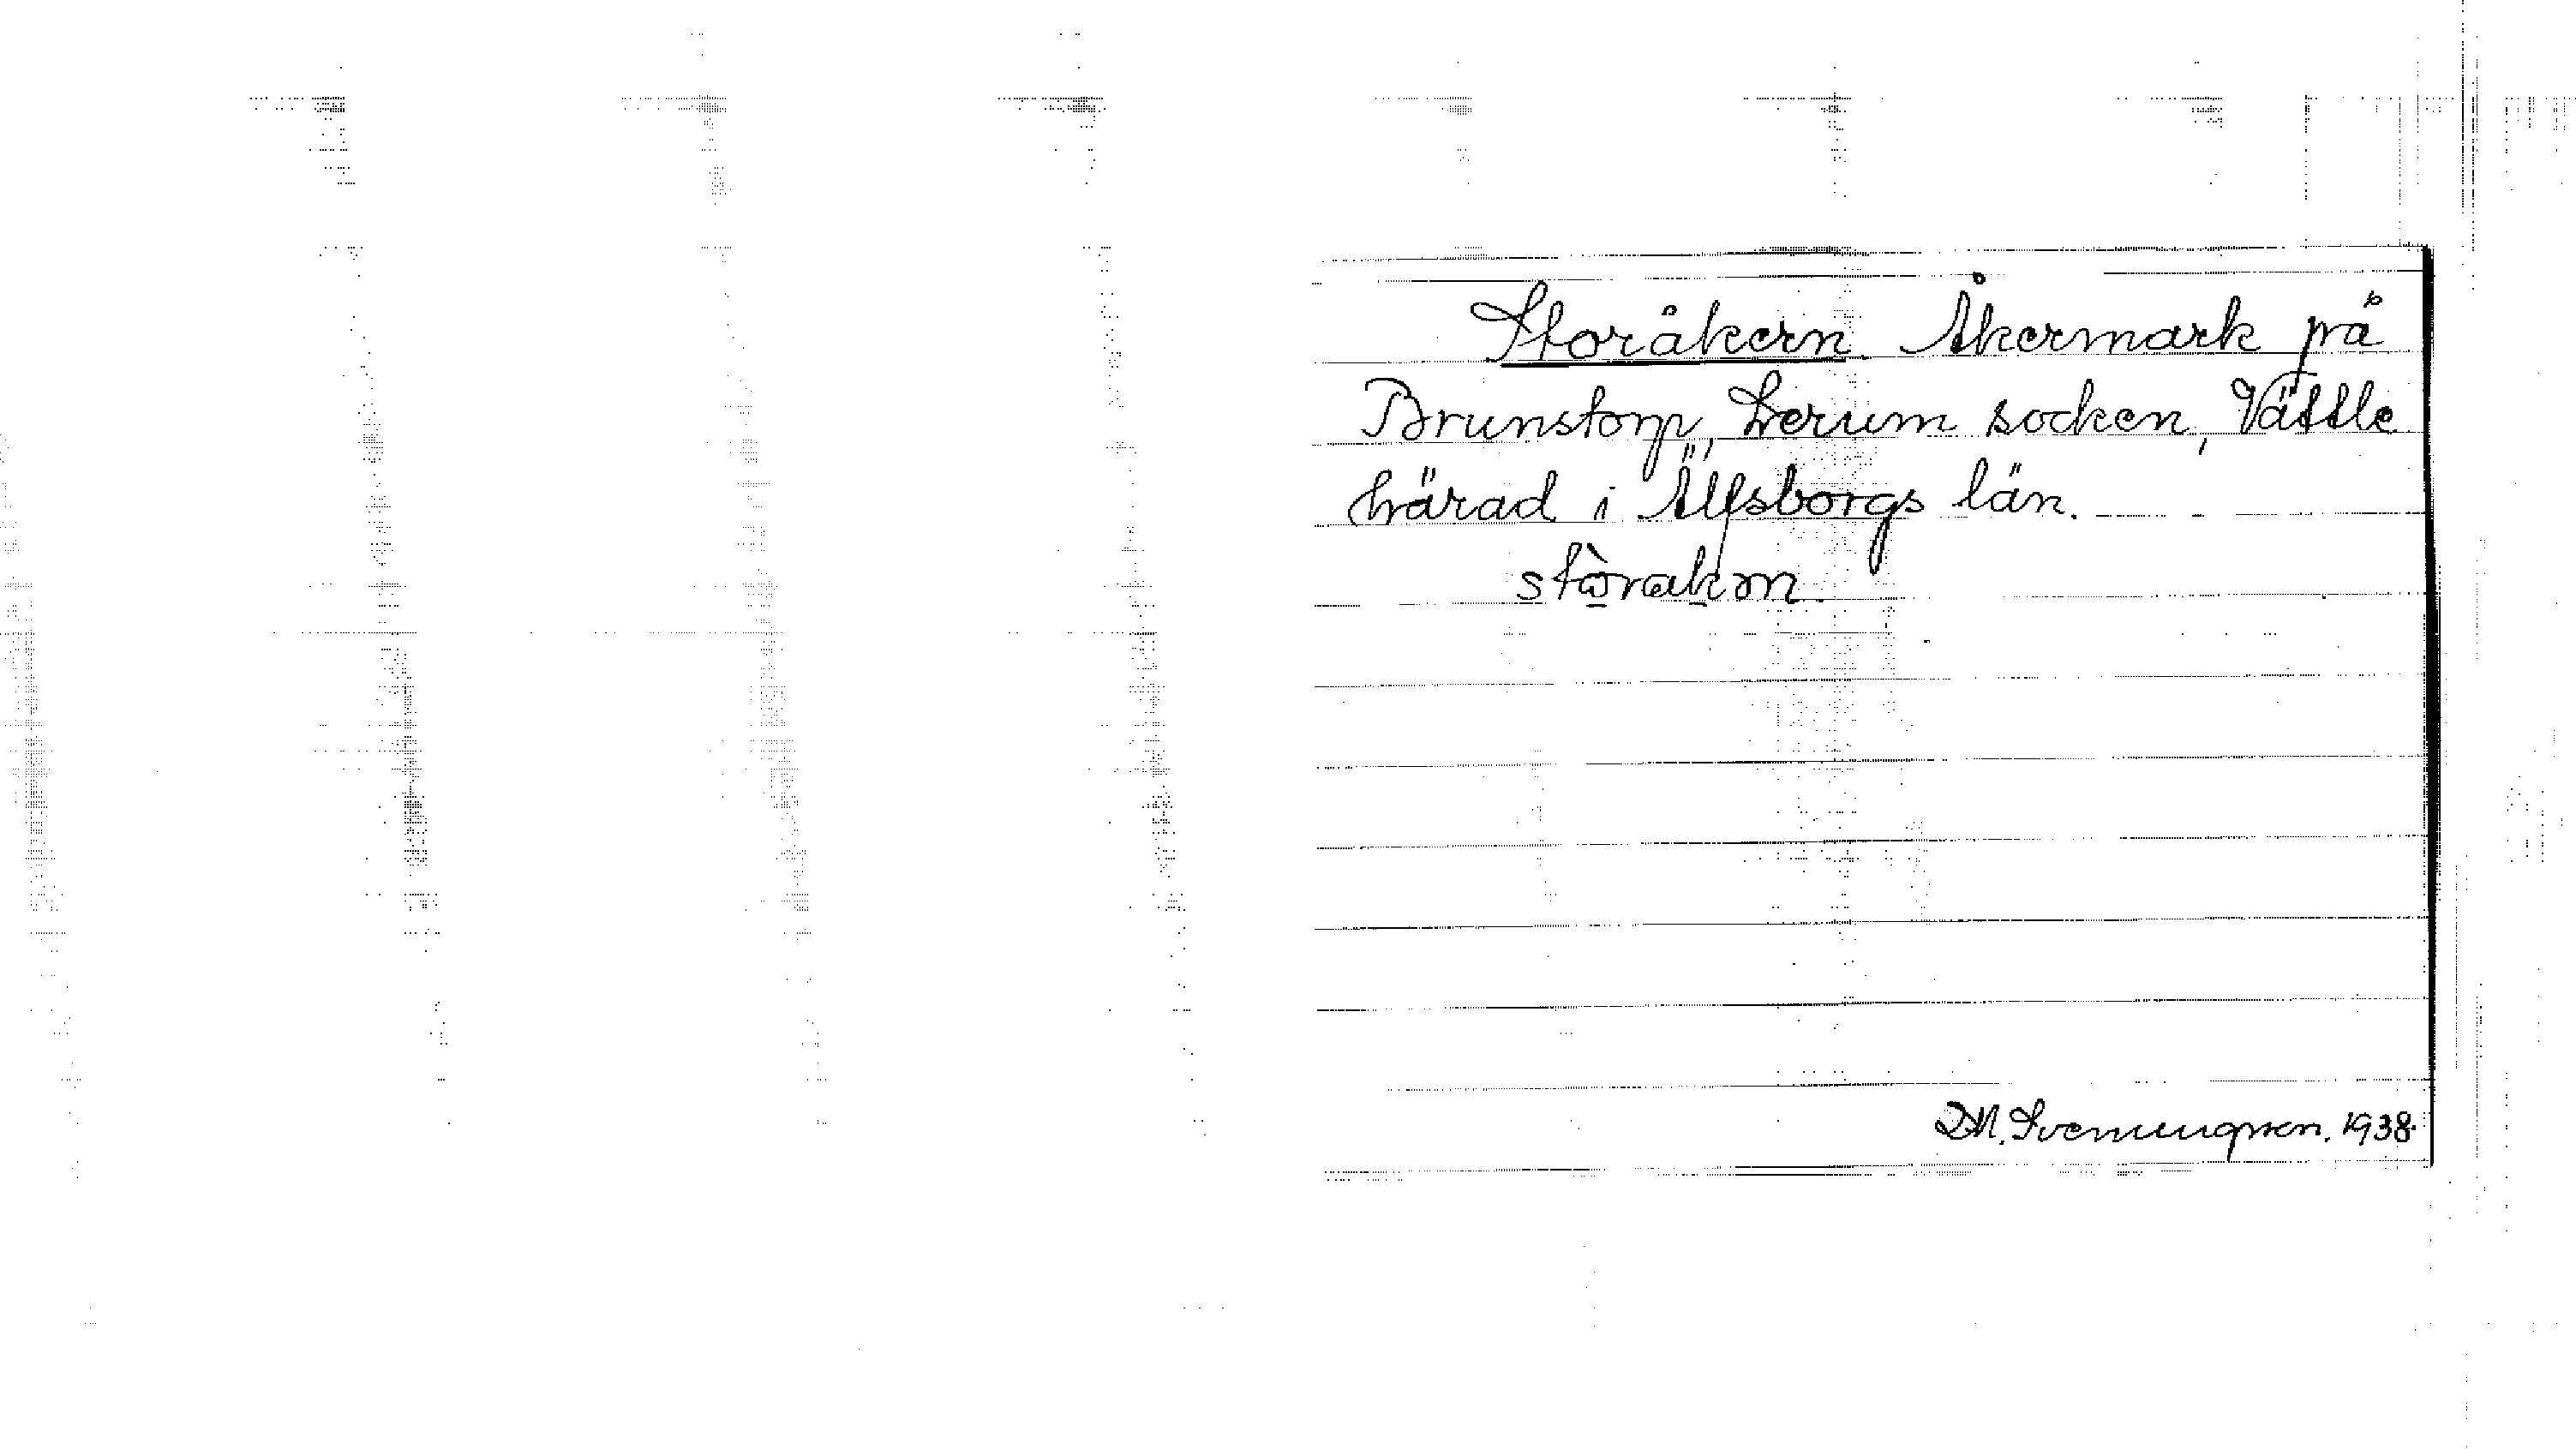 Storåkern Åkermark på
Brunstorp, Lerum socken, Vättle
härad i Älfsborgs län.
D.M. Svenningsson. 1938.